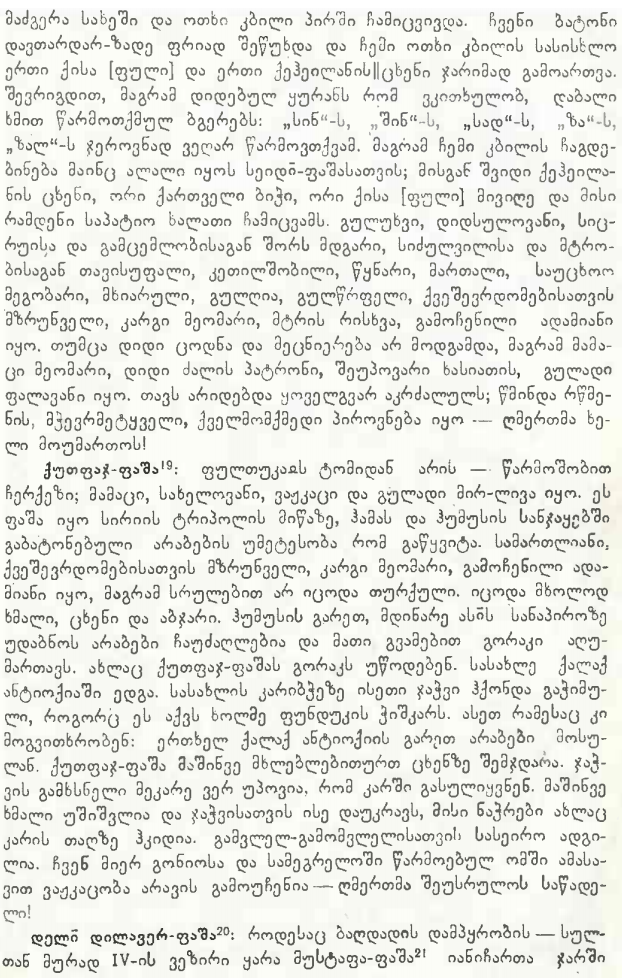 მაძგერა სახეში და ოთხი კბილი პირში ჩამიცვივდა. ჩვენი ბატონი
დავთარდარ-ზადე ფრიად შეწუხდა და ჩემი ოთხი კბილის სასისხლო
ერთი ქისა [ფული] და ერთი ქეჰეილანის||ცხენი ჯარიმად გამოართვა.
შევრიგდით, მაგრამ დიდებულ ყურანს რომ ვკითხულობ, დაბალი
ხმით წარმოთქმულ ბგერებს: „სინ“-ს, „შინ“-ს, „სად“-ს, „ზა“-ს,
„ზალ“-ს ჯეროვნად ვეღარ წარმოვთქვამ. მაგრამ ჩემი კბილის ჩაგდე-
ბინება მაინც ალალი იყოს სეიდი-ფაშასათვის; მისგან შვიდი ქეჰეილა-
ნის ცხენი, ორი ქართველი ბიჭი, ორი ქისა [ფული] მივიღე და მისი
რამდენი საპატიო ხალათი ჩამიცვამს. გულუხვი, დიდსულოვანი, სიც-
რუისა და გამცემლობისაგან შორს მდგარი, სიძულვილისა და მტრო-
ბისაგან თავისუფალი, კეთილშობილი, წყნარი, მართალი, საუცხოო
მეგობარი, მხიარული, გულღია, გულწრფელი, ქვეშევრდომებისათვის
მზრუნველი, კარგი მეომარი, მტრის რისხვა, გამოჩენილი ადამიანი
იყო. თუმცა დიდი ცოდნა და მეცნიერება არ მოდგამდა, მაგრამ მამა-
ცი მეომარი, დიდი ძალის პატრონი, შეუპოვარი ხასიათის, გულადი
ფალავანი იყო. თავს არიდებდა ყოველგვარ აკრძალულს; წმინდა რწმე-
ნის, მჭევრმეტყველი, ქველმომქმედი პიროვნება იყო — ღმერთმა ხე-
ლი მოუმართოს!
ქუთფაჯ-ფაშა¹⁹: ფულთუკაას ტომიდან არის — წარმოშობით
ჩერქეზი; მამაცი, სახელოვანი, ვაჟკაცი და გულადი მირ-ლივა იყო. ეს
ფაშა იყო სირიის ტრიპოლის მიწაზე, ჰამას და ჰუმუსის სანჯაყებში
გაბატონებული არაბების უმეტესობა რომ გაწყვიტა. სამართლიანი,
ქვეშევრდომებისათვის მზრუნველი, კარგი მეომარი, გამოჩენილი ადა-
მიანი იყო, მაგრამ სრულებით არ იცოდა თურქული. იცოდა მხოლოდ
ხმალი, ცხენი და აბჯარი. ჰუმუსის გარეთ, მდინარე ასის სანაპიროზე
უდაბნოს არაბები ჩაუძაღლებია და მათი გვამებით გორაკი აღუ-
მართავს. ახლაც ქუთფაჯ-ფაშას გორაკს უწოდებენ. სასახლე ქალაქ
ანტიოქიაში ედგა. სასახლის კარიბჭეზე ისეთი ჯაჭვი ჰქონდა გაჭიმუ-
ლი, როგორც ეს აქვს ხოლმე ფუნდუკის ჭიშკარს. ასეთ რამესაც კი
მოგვითხრობენ: ერთხელ ქალაქ ანტიოქიის გარეთ არაბები მოსუ-
ლან. ქუთფაჯ-ფაშა მაშინვე მხლებლებითურთ ცხენზე შემჯდარა. ჯაჭ-
ვის გამხსნელი მეკარე ვერ უპოვია, რომ კარში გასულიყვნენ. მაშინვე
ხმალი უშიშვლია და ჯაჭვისათვის ისე დაუკრავს, მისი ნაჭრები ახლაც
კარის თაღზე ჰკიდია. გამვლელ-გამომვლელისათვის სასეირო ადგი-
ლია. ჩვენ მიერ გონიოსა და სამეგრელოში წარმოებულ ომში ამასა-
ვით ვაჟკაცობა არავის გამოუჩენია — ღმერთმა შეუსრულოს საწადე-
ლი!
დელი დილავერ-ფაშა²⁰: როდესაც ბაღდადის დამპყრობის — სულ-
თან მურად IV-ის ვეზირი ყარა მუსტაფა-ფაშა²¹ იანიჩართა ჯარში